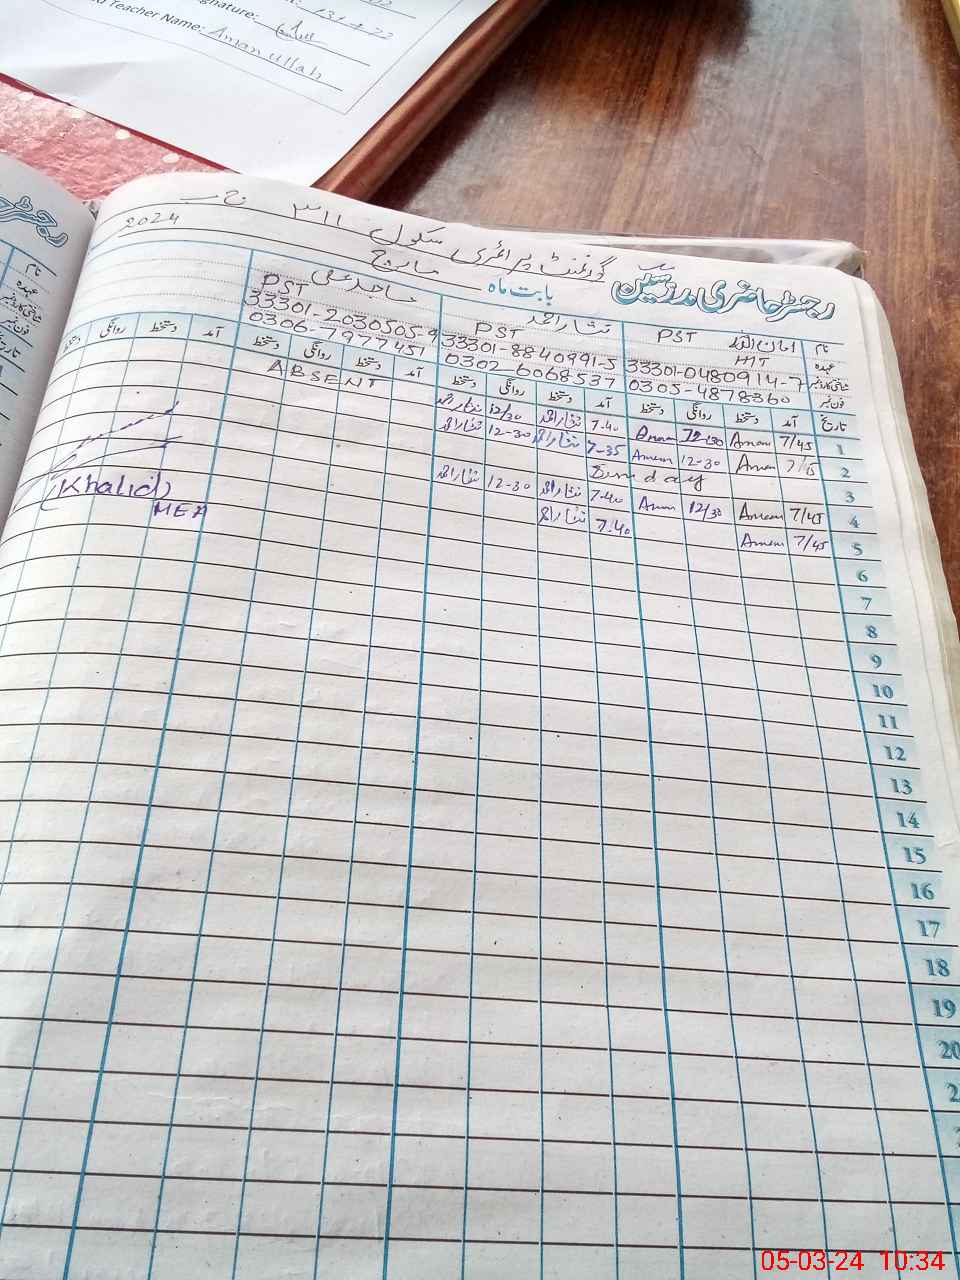 Signature:
Teacher Name: Aman ullah
رجسٹر حاضری مدرسین
گورنمنٹ پرائمری سکول ۳۱۱
بابت ماہ مارچ 2024
نام امان اللہ نثار احمد
عہدہ PST HT PST PST
شناختی کارڈ نمبر 33301-0480914-7 33301-8840991-5 33301-2030505-9
فون نمبر 0305-4878360 0302-6068537 0306-7977451
تاریخ آمد دستخط روانگی دستخط آمد دستخط روانگی دستخط آمد دستخط روانگی دستخط آمد دستخط روانگی دستخط
1 7/45 Aman 12-30 Aman 7-40 نثار احمد 12/30 نثار احمد ABSENT
2 7/45 Aman 12-30 Aman 7-35 نثار احمد 12-30 نثار احمد
3 Sunday
4 7/45 Aman 12/30 Aman 7-40 نثار احمد 12-30 نثار احمد
5 7/45 Aman 7-40 نثار احمد
(Khalid)
MEA
6
7
8
9
10
11
12
13
14
15
16
17
18
19
20
05-03-24 10:34